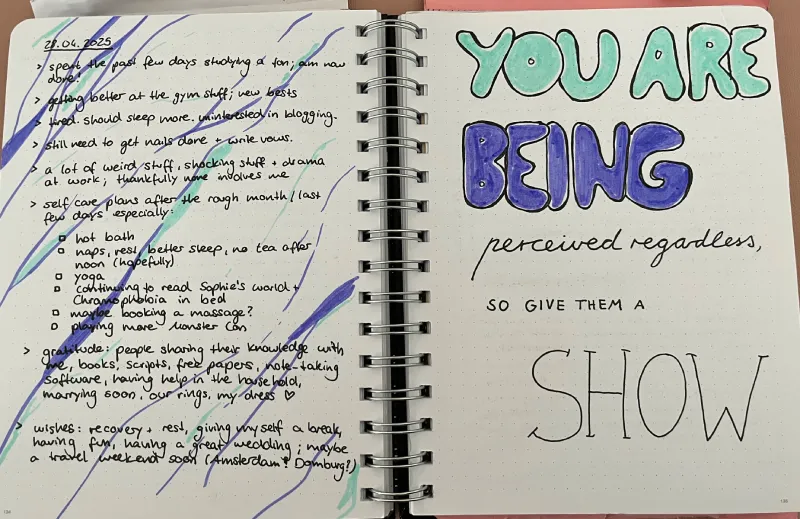 28.04.2025
> spent the past few days studying a ton; am now
done!
> getting better at the gym stuff; new bests
> tired. should sleep more. uninterested in blogging.
> still need to get nails done + write vows.
> a lot of weird stuff, shocking stuff + drama
at work; thankfully none involves me
> self care plans after the rough month/last
few days especially:
□ hot bath
□ naps, rest, better sleep, no tea after
noon (hopefully)
□ yoga
□ continuing to read Sophie's world +
Chromophobia in bed
□ maybe booking a massage?
□ playing more Monster Can
> gratitude: people sharing their knowledge with
me, books, scripts, free papers, note-taking
software, having help in the household,
marrying soon, our rings, my dress ♡
> wishes: recovery + rest, giving myself a break,
having fun, having a great wedding; maybe
a travel weekend soon (Amsterdam? Domburg?)
134
YOU ARE
BEING
perceived regardless,
SO GIVE THEM A
SHOW
135